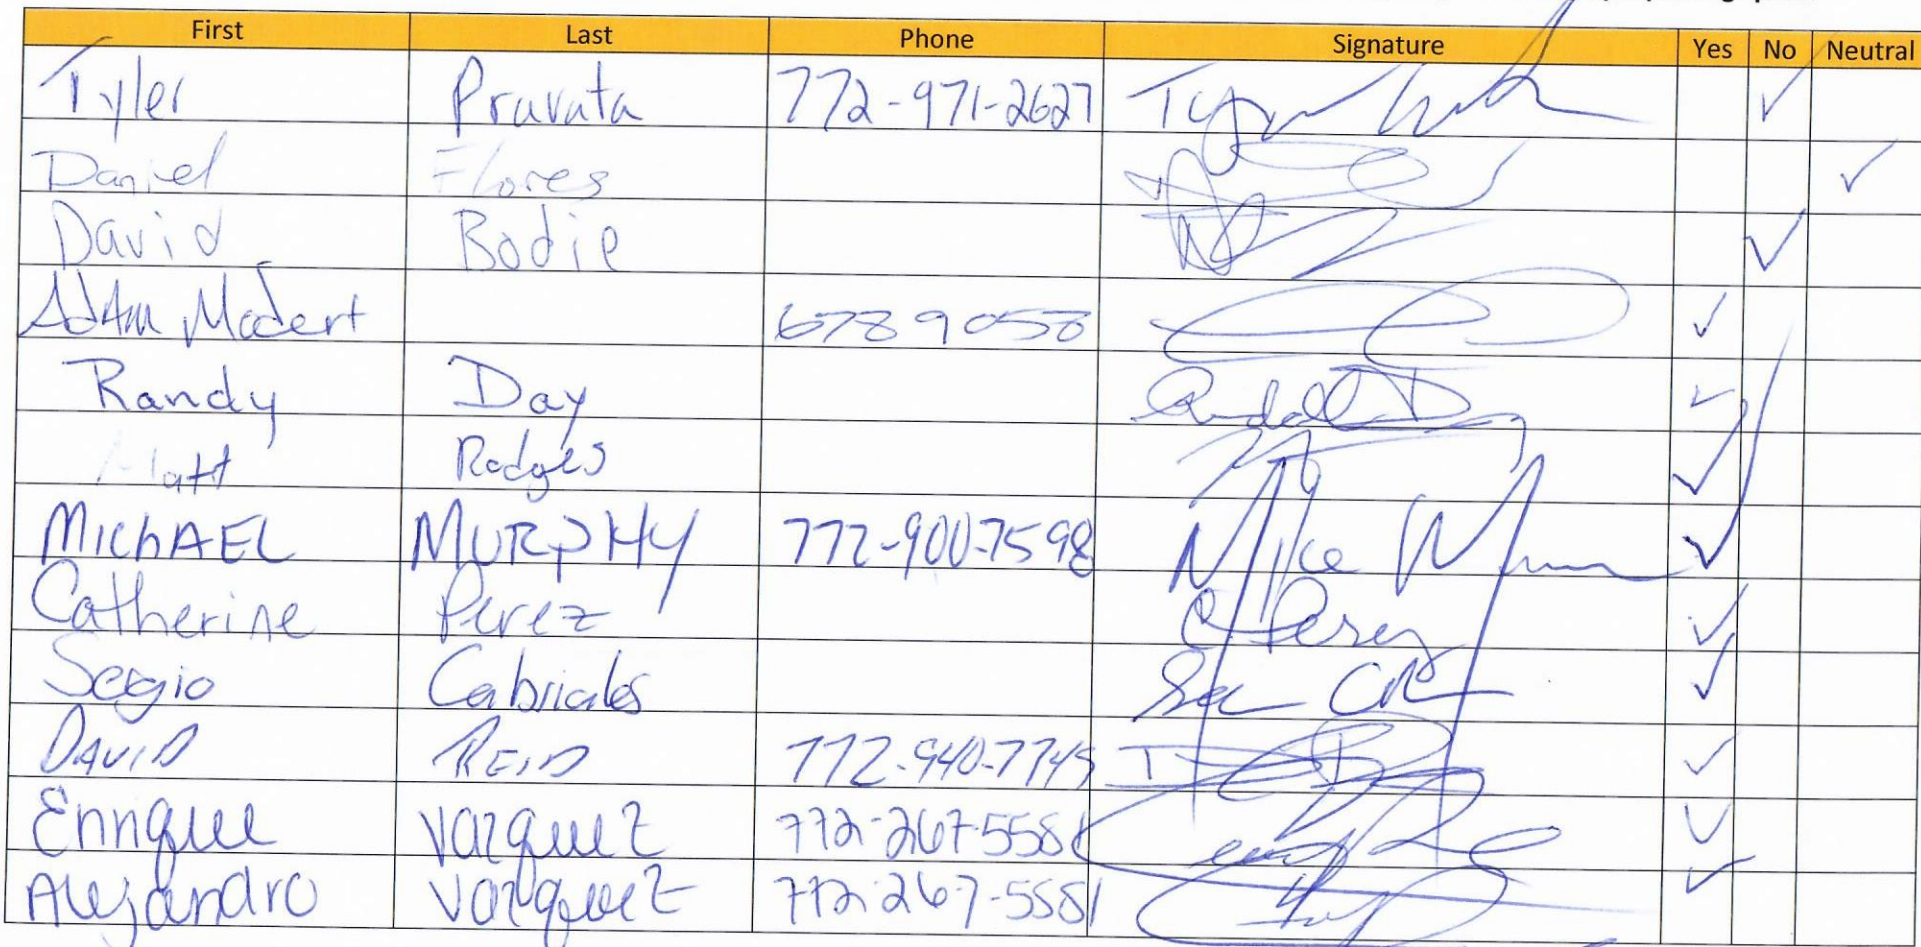 First Last Phone Signature Yes No Neutral
Tyler Pravata 772-971-2627 ✓
Daniel Flores ✓
David Bodie ✓
Adam Modert 6789058 ✓
Randy Day Randall D ✓
Matt Rodges ✓
MIChAEL MURPHY 772-900-7598 Mike M ✓
Catherine Perez C Perez ✓
Sergio Cabriales ✓
DAVID REID 772-940-7749 ✓
Enrique Vazquez 772-267-5581 ✓
Alejandro Vazquez 772-267-5581 ✓